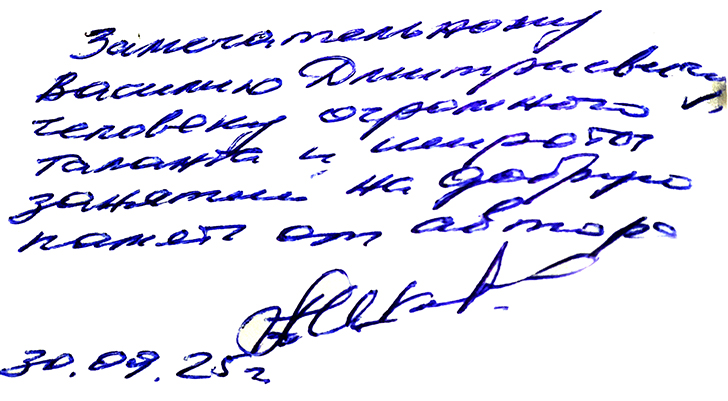 Замечательному
Василию Дмитриевичу
человеку огромного
таланта и широты
занятий на добрую
память от автора
30.09.25г